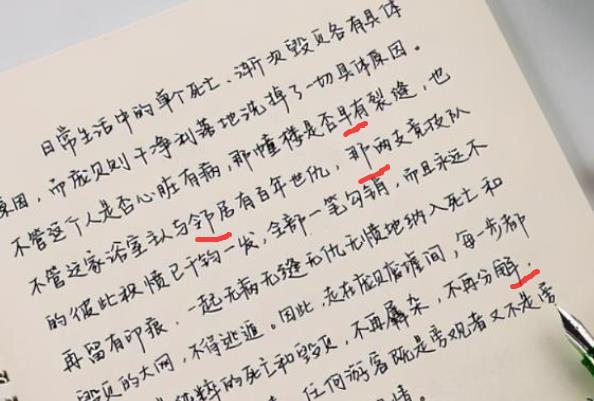 日常生活中的单个死亡、渐次毁灭各有具体
原因，而庞贝则干净利落地洗掉了一切具体原因。
不管这个人是否心脏有病，那幢楼是否早有裂缝，也
不管这家浴室主人与邻居有百年世仇，那两支竞技队
的彼此积愤已千钧一发，全部一笔勾销，而且永远不
再留有印痕，一起无病无缝无仇无愤地纳入死亡和
毁灭的大网，不得逃遁。因此，走在庞贝废墟间，每一步都
纯粹的死亡和毁灭，不再羼杂，不再分解。
任何游客既是旁观者又不是旁
情。